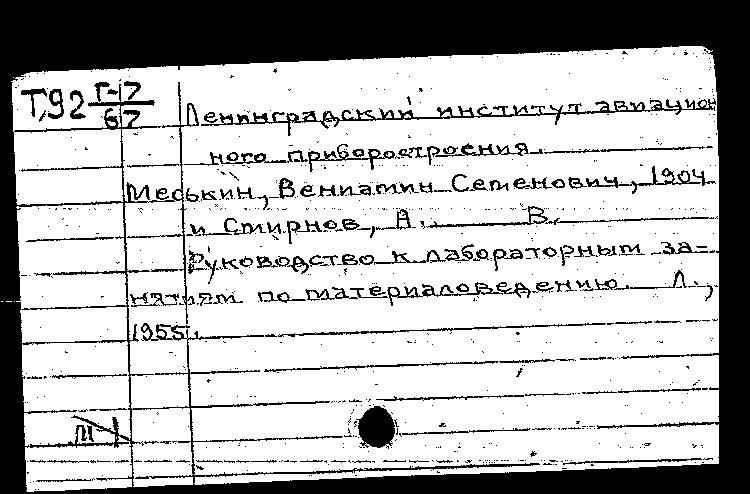 Т,92 Г-7
67
Ленинградский институт авиацион
ного приборостроения.
Меськин, Вениамин Семенович, 1904
и Смирнов, А. В.
Руководство к лабораторным за=
нятиям по материаловедению. Л.,
1955.